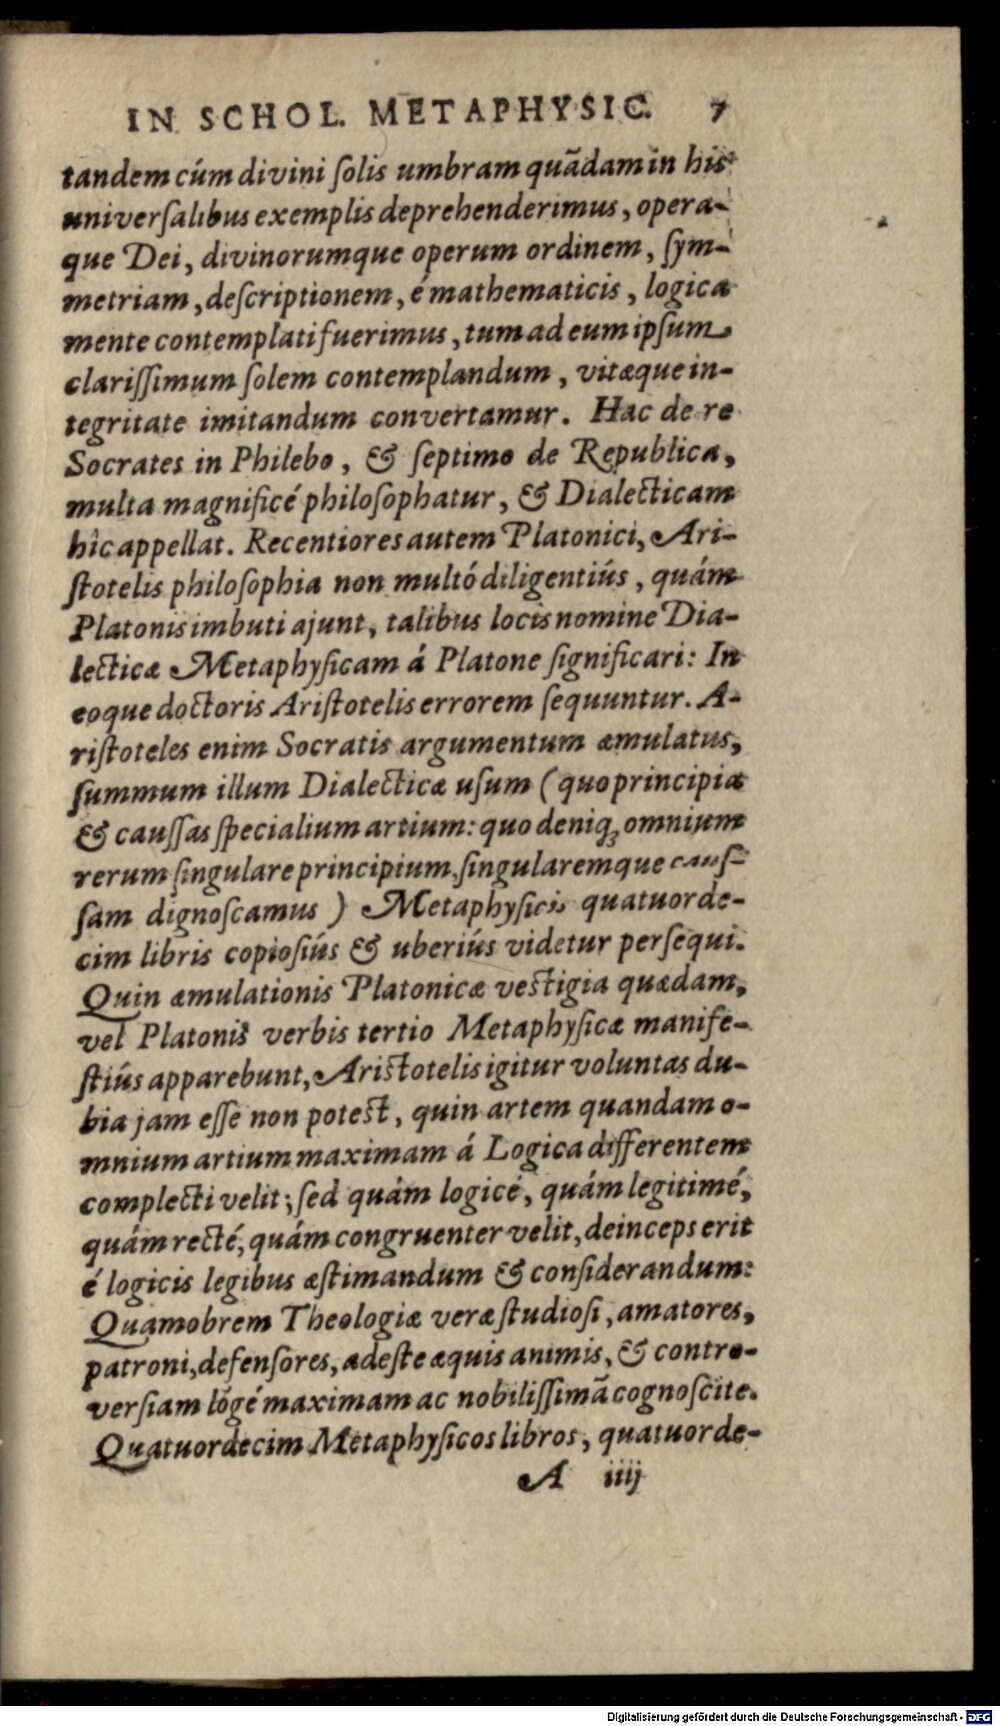 IN SCHOL. METAPHYSIC. 7
tandem cúm divini ſolis umbram quādam in his
univerſalibus exemplis deprehenderimus, opera-
que Dei, divinorumque operum ordinem, ſym-
metriam, deſcriptionem, é mathematicis, logica
mente contemplati fuerimus, tum ad eum ipſum
clariſſimum ſolem contemplandum, vitæque in-
tegritate imitandum convertamur. Hac de re
Socrates in Philebo, & ſeptimo de Republica,
multa magnificé philoſophatur, & Dialecticam
hîc appellat. Recentiores autem Platonici, Ari-
ſtotelis philoſophia non multó diligentiús, quám
Platonis imbuti ajunt, talibus locis nomine Dia-
lecticæ Metaphyſicam á Platone ſignificari: In
eoque doctoris Ariſtotelis errorem ſequuntur. A-
riſtoteles enim Socratis argumentum æmulatus,
ſummum illum Dialecticæ uſum (quo principia
& cauſſas ſpecialium artium: quo deniq́; omnium
rerum ſingulare principium, ſingularemque cauſ-
ſam dignoſcamus ) Metaphyſicis quatuorde-
cim libris copioſiús & uberiús videtur perſequi.
Quin æmulationis Platonicæ veſtigia quædam,
vel Platonis verbis tertio Metaphyſicæ manife-
ſtiús apparebunt, Ariſtotelis igitur voluntas du-
bia jam eſſe non poteſt, quin artem quandam o-
mnium artium maximam á Logica differentem
complecti velit; ſed quám logicé, quám legitimé,
quám recté, quám congruenter velit, deinceps erit
é logicis legibus æſtimandum & conſiderandum:
Quamobrem Theologiæ veræ ſtudioſi, amatores,
patroni, defenſores, adeſte æquis animis, & contro-
verſiam lōgé maximam ac nobiliſſimā cognoſcite.
Quatuordecim Metaphyſicos libros, quatuorde-
A iiij
Digitalisierung gefördert durch die Deutsche Forschungsgemeinschaft - DFG